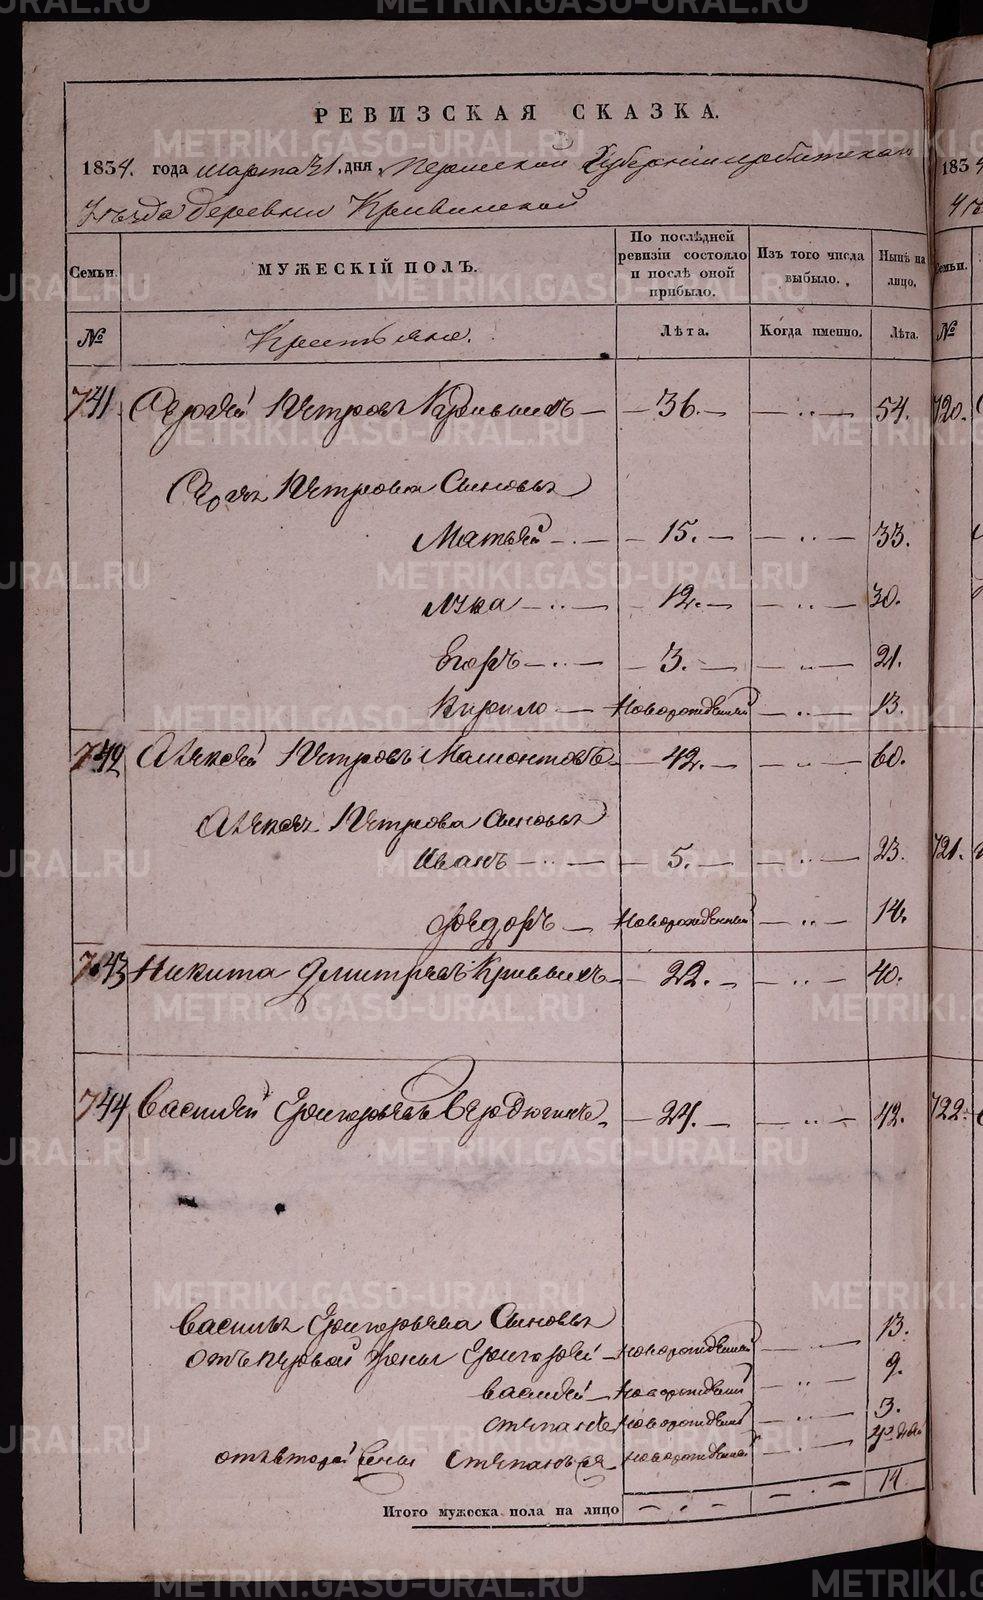 РЕВИЗСКАЯ СКАЗКА.
1834. года марта 21. дня, Пермской Губернии Ирбитскаго
Уезда Деревни Кривинской
Семьи.
МУЖЕСКІЙ ПОЛЪ.
По послѣдней ревизіи состояло и послѣ оной прибыло.
Изъ того числа выбыло.
Нынѣ на лицо.
№
Крестьяне.
Лѣта.
Когда именно.
Лѣта.
741 Сергѣй Петровъ — 36. — 54.
Сергѣя Петрова Сыновья
Матвѣй — 15. — 33.
Лука — 12. — 30.
Егоръ — 3. — 21.
Кирило — Новорожденный — 13.
742 Алексѣй Петровъ Мамонтовъ — 42. — 60.
Алексѣя Петрова Сыновья
Иванъ — 5. — 23.
Федоръ — Новорожденный — 14.
743 Никита Дмитріевъ Кривыхъ — 22. — 40.
744 Василей Григорьевъ — 24. — 42.
Василья Григорьева Сыновья 13.
Отъ первой жены Григорей — новорожденный 9.
Василей — новорожденный 3.
Степанъ новорожденный
отъ второй жены новорожденной
14.
Итого мужеска пола на лицо
1834
Семьи.
№
720.
721.
722.
METRIKI.GASO-URAL.RU